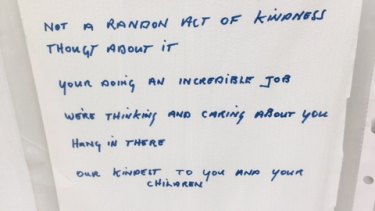 NOT A RANDON ACT OF KINDNESS
THOUGT ABOUT IT
YOUR DOING AN INCREDIBLE JOB
WERE THINKING AND CARING ABOUT YOU
HANG IN THERE
OUR KINDEST TO YOU AND YOUR
CHILDREN